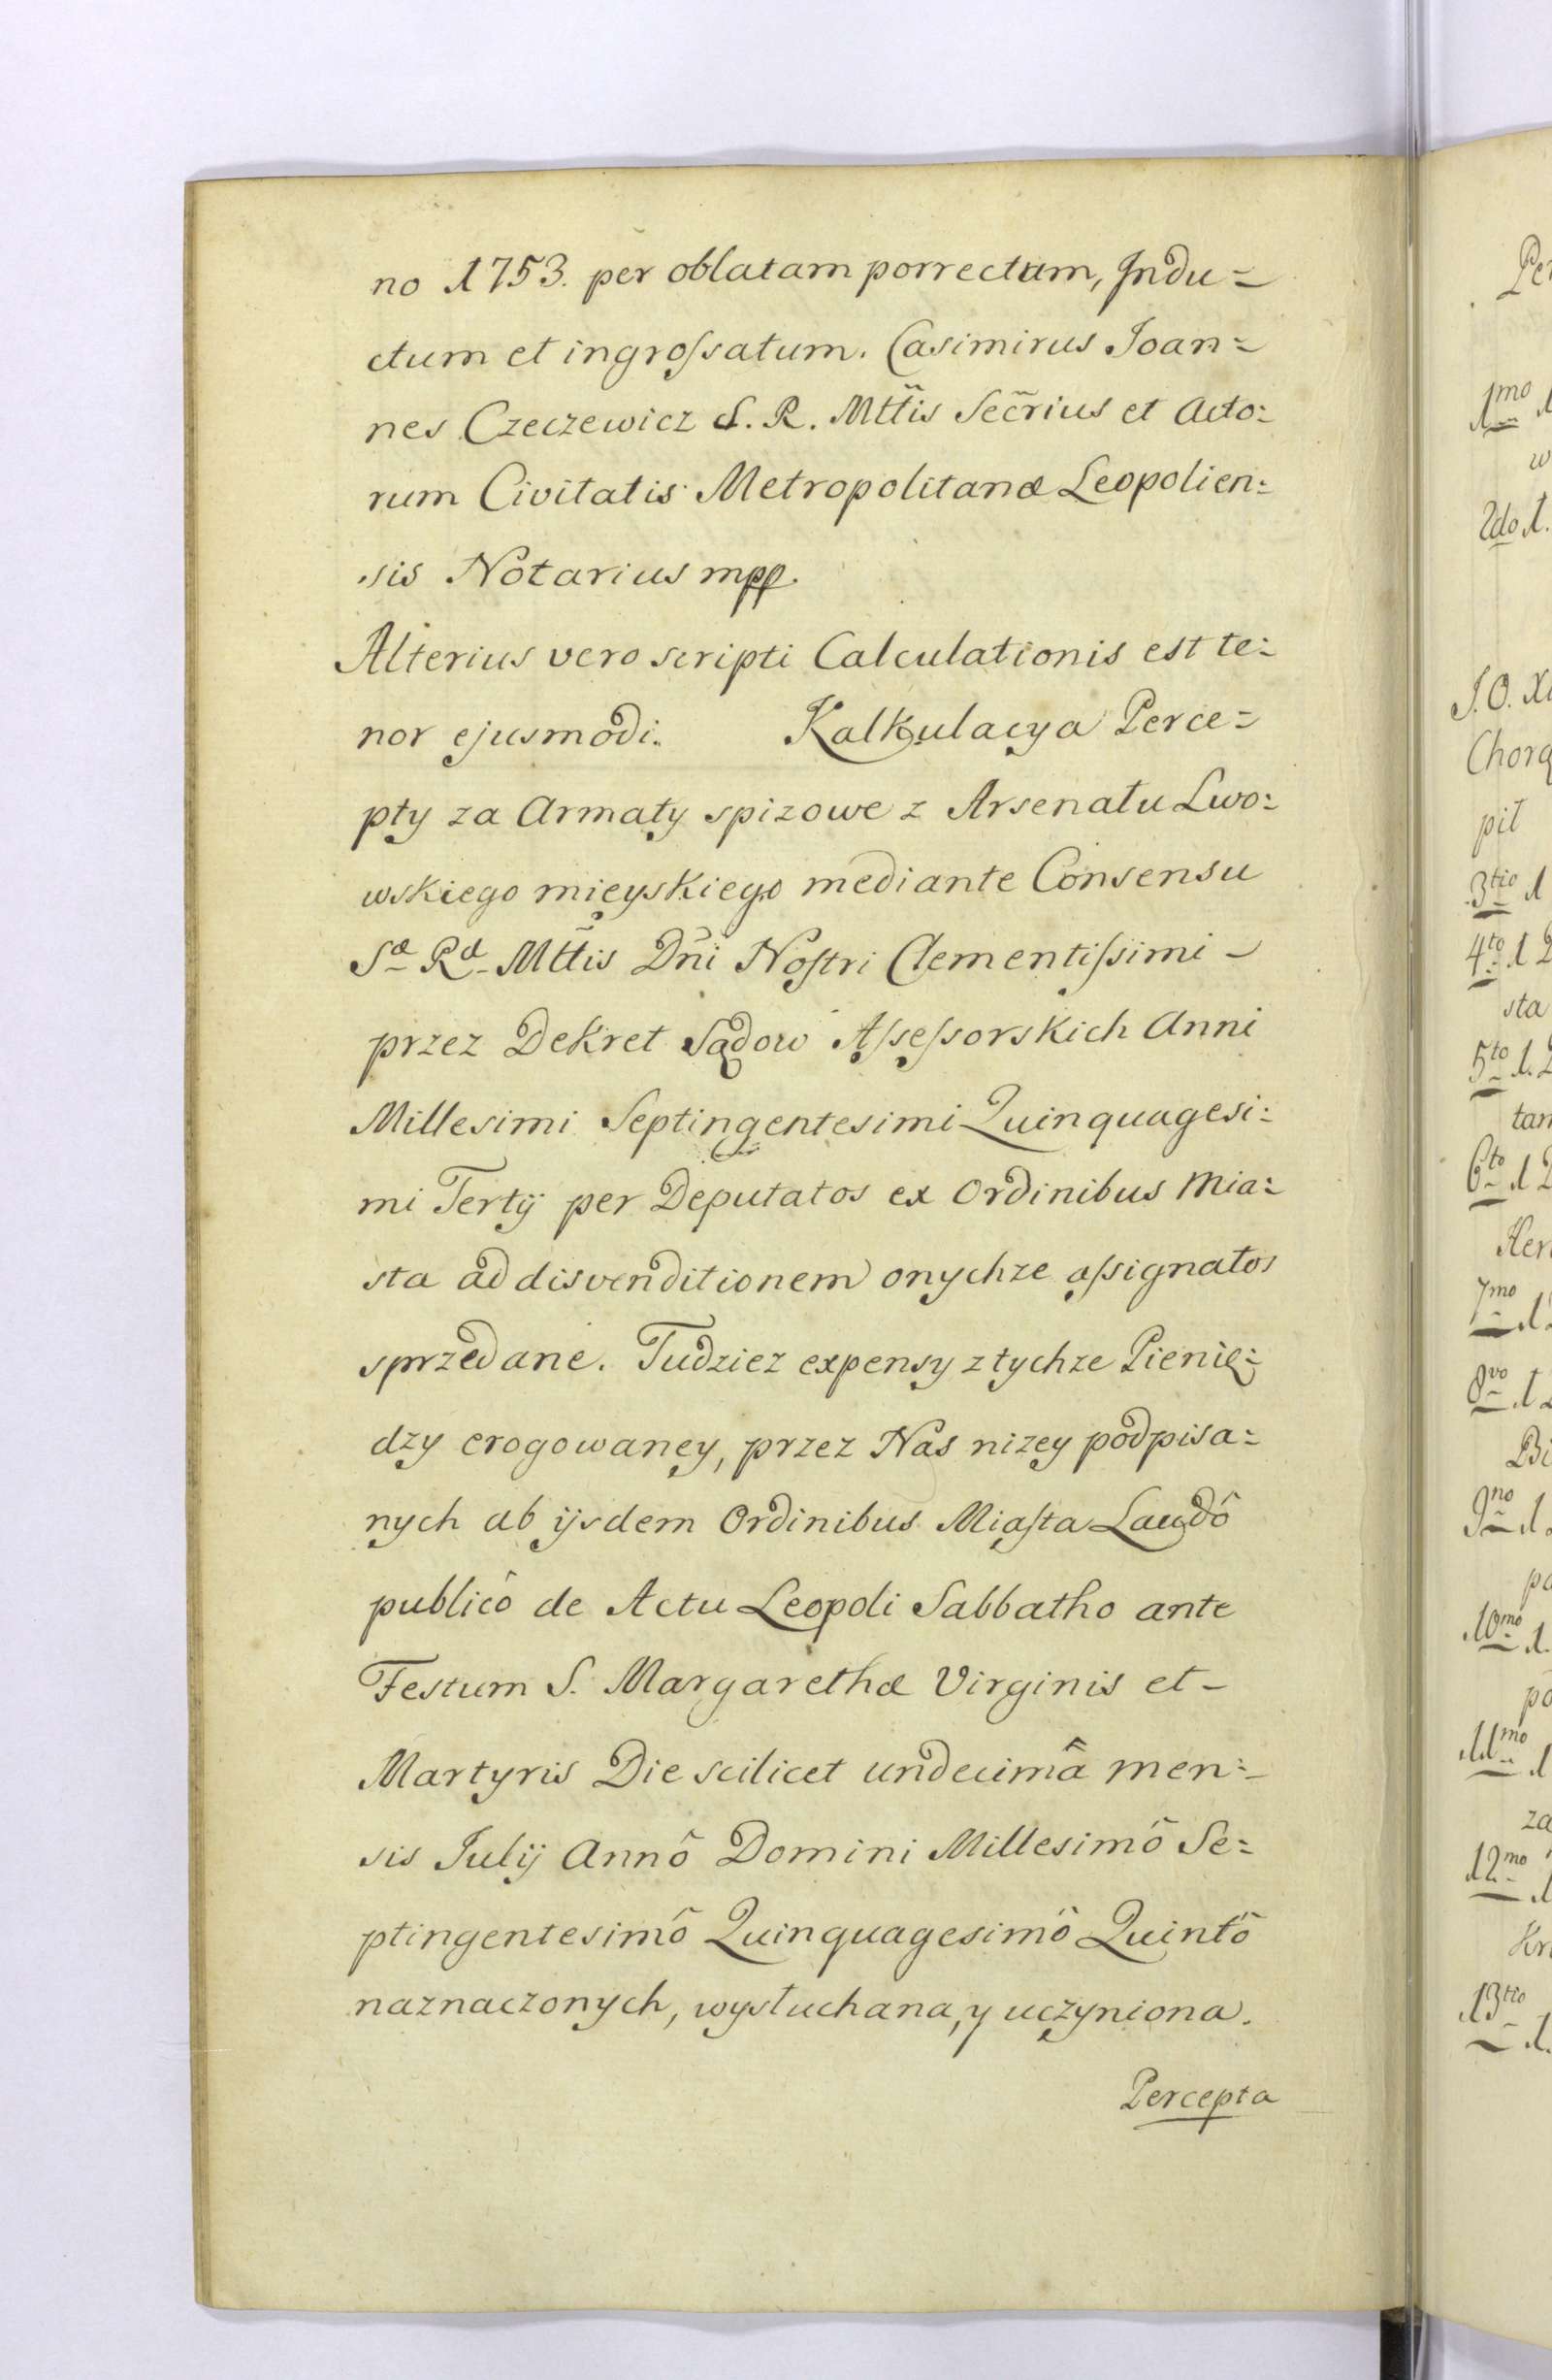 no 1753. per oblatam porrectum, Indu=
ctum et ingroſsatum. Casimirus Ioan=
nes Czeczewicz S. R. Mttis Secrius et Acto=
rum Civitatis Metropolitanæ Leopolien=
sis Notarius mpp.
Alterius vero scripti Calculationis est te=
nor ejusmodi. Kalkulacya Perce=
pty za Armaty spizowe z Arsenału Lwo=
wskiego mieyskiego mediante Consensu
Sæ Ræ Mttis Dni Noſtri Clementiſsimi -
przez Dekret Sądow Aſseſsorskich Anni
Millesimi Septingentesimi Quinquagesi=
mi Tertij per Deputatos ex Ordinibus Mia=
sta ad disvenditionem onychze aſsignatos
sprzedane. Tudziez expensy z tychze Pienię=
dzy erogowaney, przez Nas nizey podpisa=
nych ab ijsdem Ordinibus Miaſta Laudô
publicô de Actu Leopoli Sabbatho ante
Festum S. Margarethæ Virginis et -
Martyris Die scilicet undecimâ men=
sis Julij Annô Domini Millesimô Se=
ptingentesimô Quinquagesimô Quintô
naznaczonych, wysłuchana, y uczyniona.
Percepta
1mo
2do 1.
J. O. X
Chorą
pił
3tio 1
4to 1 2
sta
5to 1. 2
6to 1 2
7mo
8vo
9no
10mo
11mo
za
12mo
13tio